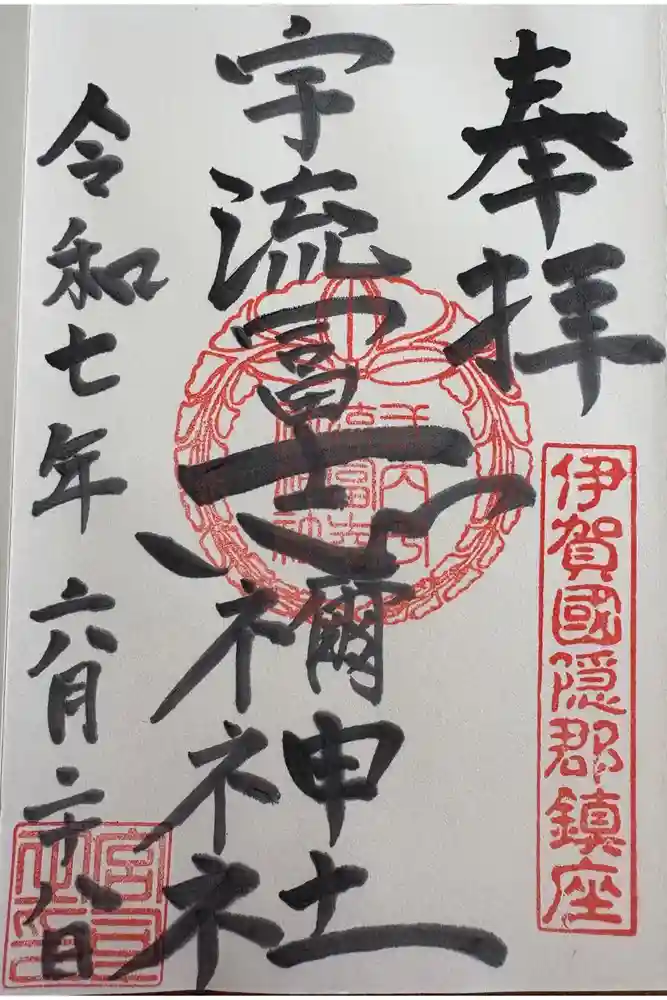 奉拝
伊賀國隠郡鎮座
宇流冨志禰神社
令和七年六月二十八日
宮司之印